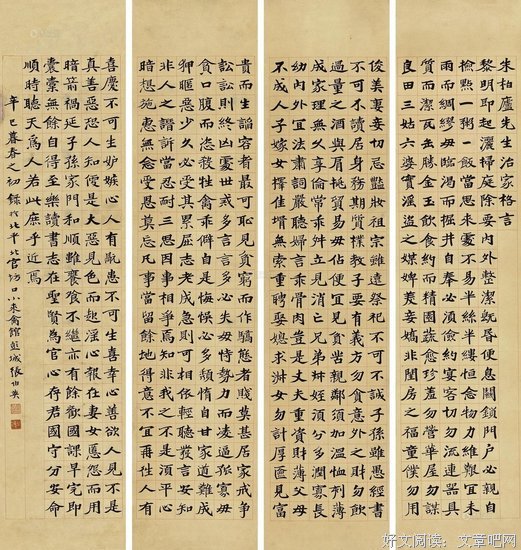 朱柏廬先生治家格言
黎明即起灑掃庭除要內外整潔既昏便息關鎖門戶必親自
檢點一粥一飯當思來處不易半絲半縷恒念物力維艱宜未
雨而綢繆毋臨渴而掘井自奉必須儉約宴客切勿流連器具
質而潔瓦缶勝金玉飲食約而精園蔬愈珍羞勿營華屋勿謀
良田三姑六婆實淫盜之媒婢美妾嬌非閨房之福童僕勿用
俊美妻妾切忌豔妝祖宗雖遠祭祀不可不誠子孫雖愚經書
不可不讀居身務期質樸教子要有義方勿貪意外之財勿飲
過量之酒與肩挑貿易毋佔便宜見貧苦親鄰須加溫恤刻薄
成家理無久享倫常乖舛立見消亡兄弟叔姪須分多潤寡長
幼內外宜法肅詞嚴聽婦言乖骨肉豈是丈夫重資財薄父母
不成人子嫁女擇佳壻無索重聘娶媳求淑女勿計厚匳見富
貴而生諂容者最可恥見貧窮而作驕態者賤莫甚居家戒爭
訟訟則終凶處世戒多言言多必失毋恃勢力而凌逼孤寡毋
貪口腹而恣殺牲禽乖僻自是悔悞必多頹惰自甘家道難成
狎暱惡少久必受其累屈志老成急則可相依輕聽發言安知
非人之譖訴當忍耐三思因事相爭焉知非我之不是須平心
暗想施惠無念受恩莫忘凡事當留餘地得意不宜再往人有
喜慶不可生妒嫉心人有禍患不可生喜幸心善欲人見不是
真善惡恐人知便是大惡見色而起淫心報在妻女匿怨而用
暗箭禍延子孫家門和順雖饔飧不繼亦有餘歡國課早完即
囊橐無餘自得至樂讀書志在聖賢為官心存君國守分安命
順時聽天為人若此庶乎近焉
辛巳暮春之初錄於北平北官坊口小來禽館彭城張伯英
好文阅读：文章吧网